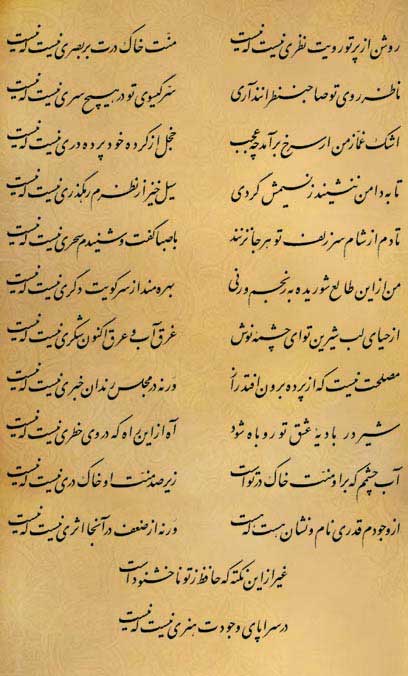 روشن از پرتو رویت نظری نیست که نیست منت خاک درت بر بصری نیست که نیست
ناظر روی تو صاحب نظرانند آری سر گیسوی تو در هیچ سری نیست که نیست
اشک غماز من ار سرخ برآمد چه عجب خجل از کرده خود پرده دری نیست که نیست
تا به دامن ننشیند ز نسیمش گردی سیل خیز از نظرم رهگذری نیست که نیست
تا دم از شام سر زلف تو هر جا نزنند با صبا گفت و شنیدم سحری نیست که نیست
من از این طالع شوریده به رنجم ورنی بهره مند از سر کویت دگری نیست که نیست
از حیای لب شیرین تو ای چشمه نوش غرق آب و عرق اکنون شکری نیست که نیست
مصلحت نیست که از پرده برون افتد راز ورنه در مجلس رندان خبری نیست که نیست
شیر در بادیۀ عشق تو روباه شود آه از این راه که در وی خطری نیست که نیست
آب چشمم که بر او منت خاک در توست زیر صد منت او خاک دری نیست که نیست
از وجودم قدری نام و نشان هست که هست ورنه از ضعف در آنجا اثری نیست که نیست
غیر از این نکته که حافظ ز تو ناخشنود است
در سراپای وجودت هنری نیست که نیست